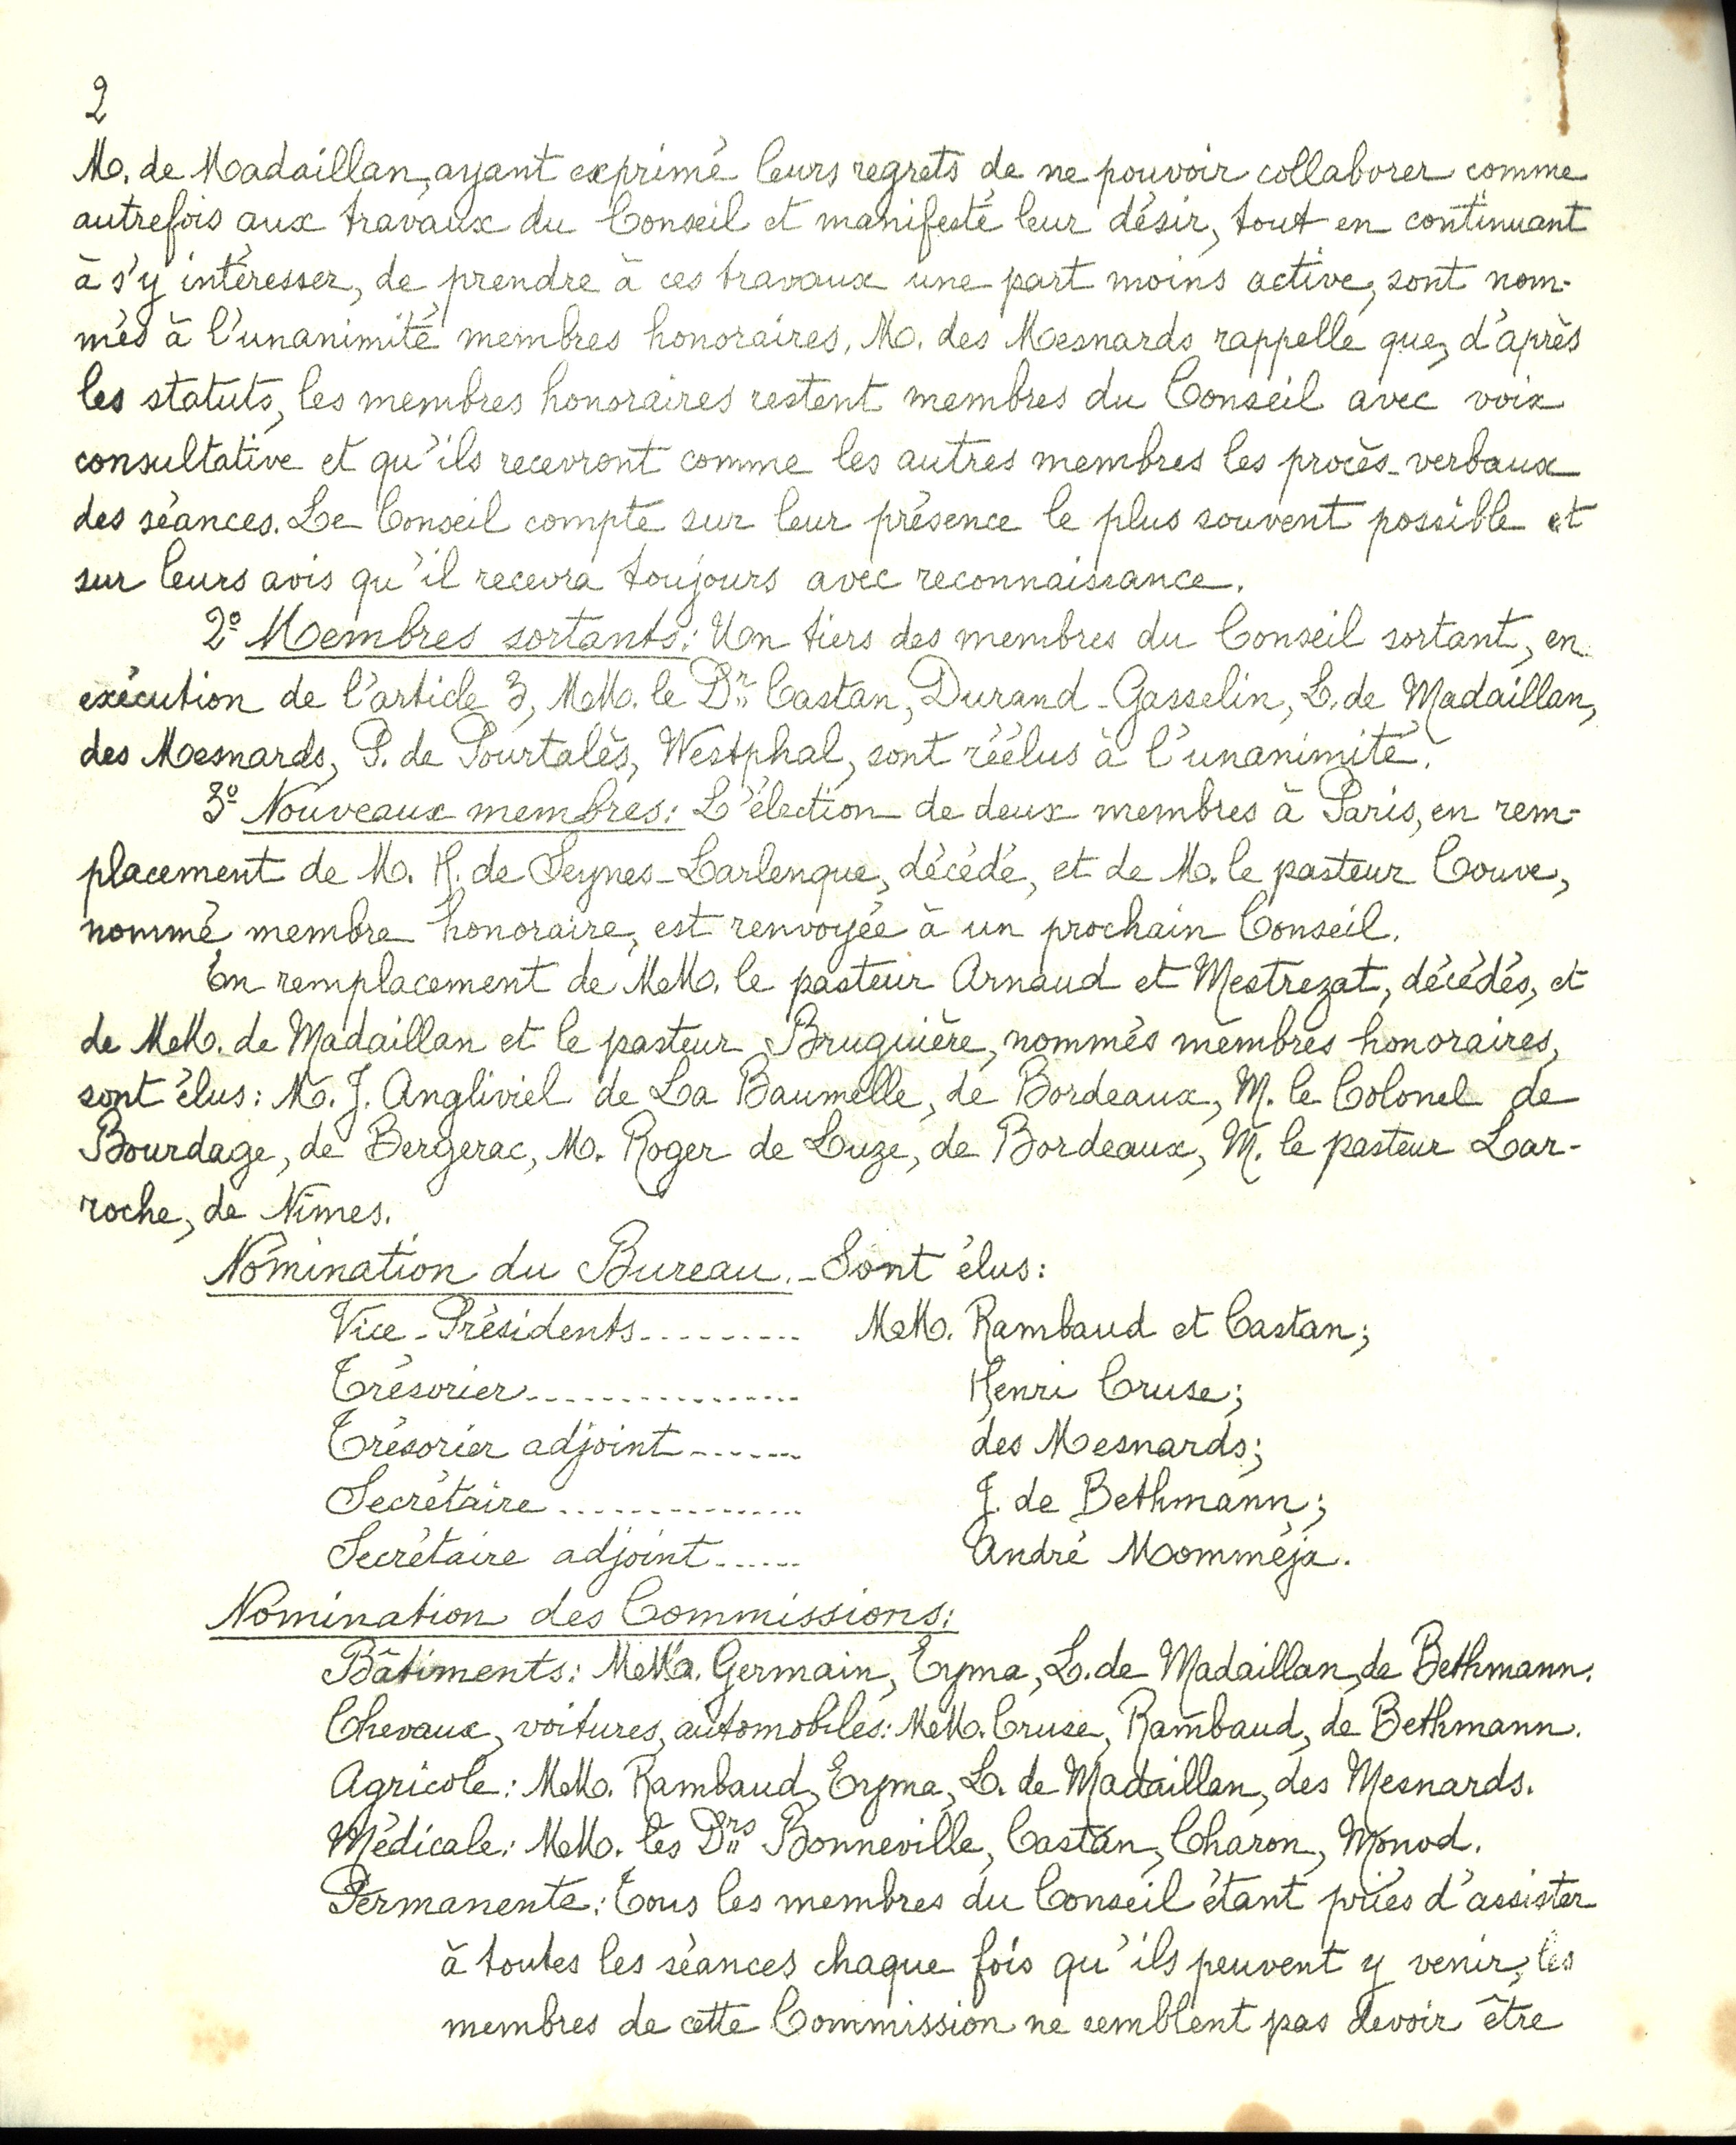 2
M. de Madaillan, ayant exprimé leurs regrets de ne pouvoir collaborer comme
autrefois aux travaux du Conseil et manifesté leur désir, tout en continuant
à s'y intéresser, de prendre à ces travaux une part moins active, sont nom-
més à l'unanimité membres honoraires. M. des Mesnards rappelle que, d'après
les statuts, les membres honoraires restent membres du Conseil avec voix
consultative et qu'ils recevront comme les autres membres les procès-verbaux
des séances. Le Conseil compte sur leur présence le plus souvent possible et
sur leurs avis qu'il recevra toujours avec reconnaissance.
2º Membres sortants: Un tiers des membres du Conseil sortant, en
exécution de l'article 3, MM. le Dr Castan, Durand-Gasselin, L. de Madaillan,
des Mesnards, P. de Pourtalès, Westphal, sont réélus à l'unanimité.
3º Nouveaux membres: L'élection de deux membres à Paris, en rem-
placement de M. H. de Seynes-Larlenque, décédé, et de M. le pasteur Couve,
nommé membre honoraire, est renvoyée à un prochain Conseil.
En remplacement de MM. le pasteur Arnaud et Mestrezat, décédés, et
de MM. de Madaillan et le pasteur Bruguière, nommés membres honoraires,
sont élus: M. J. Angliviel de La Baumelle, de Bordeaux, M. le Colonel de
Bourdage, de Bergerac, M. Roger de Luze, de Bordeaux, M. le pasteur Lar-
roche, de Nîmes.
Nomination du Bureau. - Sont élus:
Vice-Présidents......... MM. Rambaud et Castan;
Trésorier................ Henri Cruse;
Trésorier adjoint....... des Mesnards;
Secrétaire .............. J. de Bethmann;
Secrétaire adjoint...... André Momméja.
Nomination des Commissions:
Bâtiments: MM. Germain, Eyma, L. de Madaillan, de Bethmann.
Chevaux, voitures, automobiles: MM. Cruse, Rambaud, de Bethmann.
Agricole: MM. Rambaud, Eyma, L. de Madaillan, des Mesnards.
Médicale: MM. les Drs Bonneville, Castan, Charon, Monod.
Permanente: Tous les membres du Conseil étant priés d'assister
à toutes les séances chaque fois qu'ils peuvent y venir, les
membres de cette Commission ne semblent pas devoir être